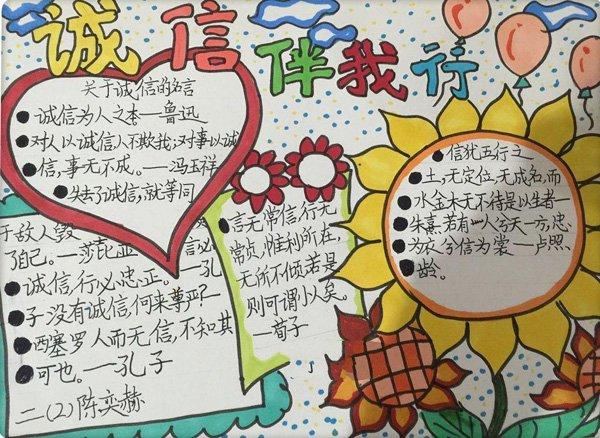 诚信伴我行
关于诚信的名言
诚信为人之本——鲁迅
对人以诚信,人不欺我;对事以诚
信,事无不成。——冯玉祥
失去了诚信,就等同
于敌人毁
了自己。——莎士比亚
言必
诚信,行必忠正。——孔
子没有诚信,何来尊严?—
西塞罗人而无信,不知其
可也。——孔子
二(2)陈奕赫
言无常信,行无
常贞,惟利所在,
无所不倾若是
则可谓小人矣。
—荀子
信犹五行之
土,无定位,无成名,而
水金木无不待是以生者—
朱熹若有一人兮天一方,忠
为衣兮信为裳—卢照
龄。